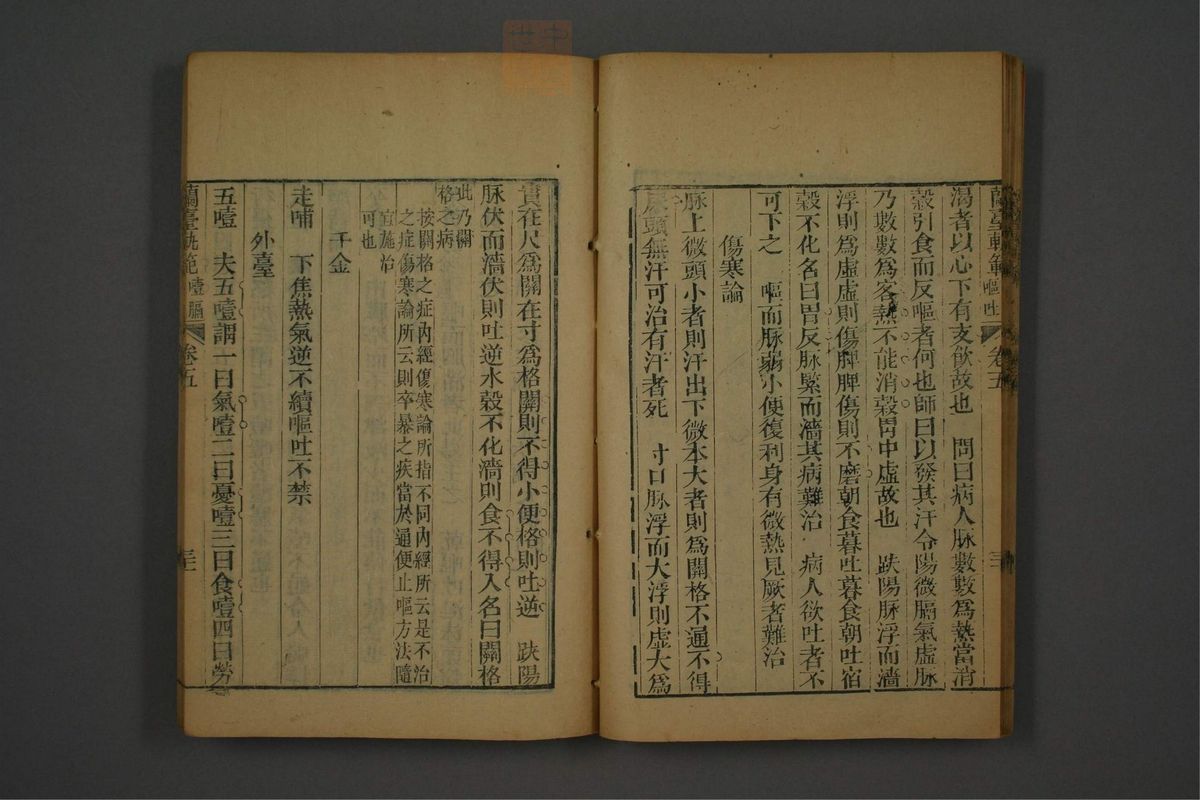 蘭臺軌範 嘔吐 卷五
渴者以心下有支飲故也　問曰病人脉數數爲熱當消
穀引食而反嘔者何也師曰以發其汗令陽微膈氣虛脉
乃數數爲客熱不能消穀胃中虛故也　趺陽脉浮而濇
浮則爲虛虛則傷脾脾傷則不磨朝食暮吐暮食朝吐宿
穀不化名曰胃反脉緊而濇其病難治　病人欲吐者不
可下之　嘔而脉弱小便復利身有微熱見厥者難治
傷寒論
脉上微頭小者則汗出下微本大者則爲關格不通不得
尿頭無汗可治有汗者死　寸口脉浮而大浮則虛大爲
實在尺爲關在寸爲格關則不得小便格則吐逆　趺陽
脉伏而濇伏則吐逆水穀不化濇則食不得入名曰關格
此乃關
格之病
按關格之症內經傷寒論所指不同內經所云是不治
之症傷寒論所云則卒暴之疾當於通便止嘔方法隨
宜施治
可也
千金
走哺　下焦熱氣逆不續嘔吐不禁
外臺
五噎　夫五噎謂一曰氣噎二曰憂噎三曰食噎四曰勞
蘭臺軌範 噎膈 卷五